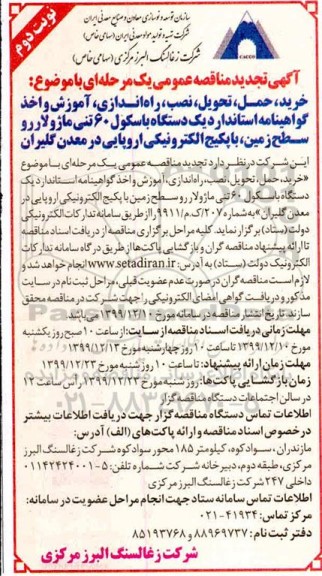 نوبت دوم
سازمان توسعه و نوسازی معادن و صنایع معدنی ایران
شرکت تهیه و تولید مواد معدنی ایران (سهامی خاص)
شرکت زغالسنگ البرز مرکزی (سهامی خاص)
CACCO
آگهی تجدید مناقصه عمومی یک مرحله‌ای با موضوع:
خرید، حمل، تحویل، نصب، راه‌اندازی، آموزش و اخذ
گواهینامه استاندارد یک دستگاه باسکول ۶۰ تنی ماژولار رو
سطح زمین، با پکیج الکترونیکی اروپایی در معدن گلیران
این شرکت در نظر دارد تجدید مناقصه عمومی یک مرحله‌ای با موضوع
«خرید، حمل، تحویل، نصب، راه‌اندازی، آموزش و اخذ گواهینامه استاندارد یک
دستگاه باسکول ۶۰ تنی ماژولار رو سطح زمین با پکیج الکترونیکی اروپایی در
معدن گلیران» به شماره ۲۰۷/ک.م/۹۹۱۱ را از طریق سامانه تدارکات الکترونیکی
دولت (ستاد) برگزار نماید. کلیه مراحل برگزاری مناقصه از دریافت اسناد مناقصه
تا ارائه پیشنهاد مناقصه گران و بازگشایی پاکت‌ها از طریق درگاه سامانه تدارکات
الکترونیک دولت (ستاد) به آدرس: www.setadiran.ir انجام خواهد شد و
لازم است مناقصه گران در صورت عدم عضویت قبلی، مراحل ثبت نام در سایت
مذکور و دریافت گواهی امضای الکترونیکی را جهت شرکت در مناقصه محقق
سازند. تاریخ انتشار مناقصه در سامانه مورخ ۱۳۹۹/۱۲/۱۰ می‌باشد.
مهلت زمانی دریافت اسناد مناقصه از سایت: از ساعت ۱۰ صبح روز یکشنبه
مورخ ۱۳۹۹/۱۲/۱۰ تا ساعت ۲۰ روز چهارشنبه مورخ ۱۳۹۹/۱۲/۱۳
مهلت زمان ارائه پیشنهاد: تا ساعت ۱۰ روز شنبه مورخ ۱۳۹۹/۱۲/۲۳
زمان بازگشایی پاکت‌ها: روز شنبه مورخ ۱۳۹۹/۱۲/۲۳ راس ساعت ۱۲
در سالن اجتماعات دستگاه مناقصه گزار
اطلاعات تماس دستگاه مناقصه گزار جهت دریافت اطلاعات بیشتر
در خصوص اسناد مناقصه و ارائه پاکت‌های (الف) آدرس:
مازندران، سوادکوه، کیلومتر ۱۸۵ محور سوادکوه شرکت زغالسنگ البرز
مرکزی، طبقه دوم، دبیرخانه شرکت شماره تلفن: ۵-۰۱۱۴۲۴۲۴۰۰۱
داخلی ۲۴۷ شرکت زغالسنگ البرز مرکزی
اطلاعات تماس سامانه ستاد جهت انجام مراحل عضویت در سامانه:
مرکز تماس: ۴۱۹۳۴-۰۲۱
دفتر ثبت نام: ۸۸۹۶۹۷۳۷ و ۸۵۱۹۳۷۶۸
شرکت زغالسنگ البرز مرکزی